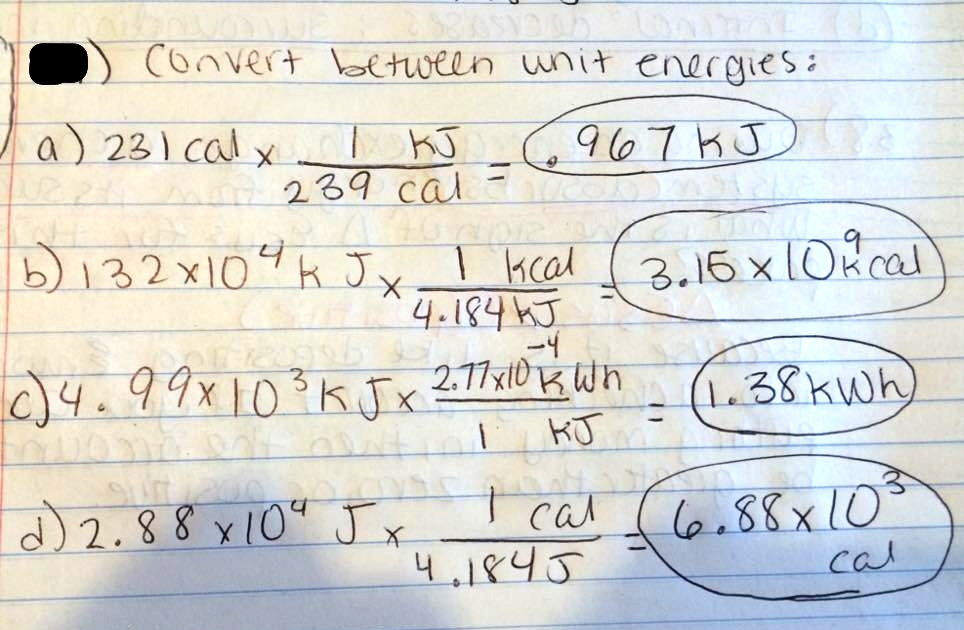 ) Convert between unit energies:
a) 231 cal x 1 kJ / 239 cal = .967 kJ
b) 132 x 10^4 kJ x 1 kcal / 4.184 kJ = 3.15 x 10^9 kcal
c) 4.99 x 10^3 kJ x 2.77x10^-4 kWh / 1 kJ = 1.38 kWh
d) 2.88 x 10^4 J x 1 cal / 4.184 J = 6.88 x 10^3 cal